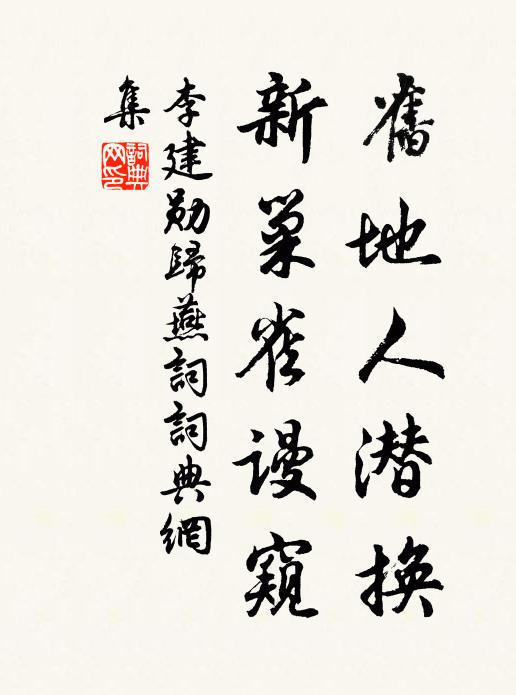 舊地人潜換
新巢雀謾窺
李建勛歸燕詞詞典網
集
詞典网印